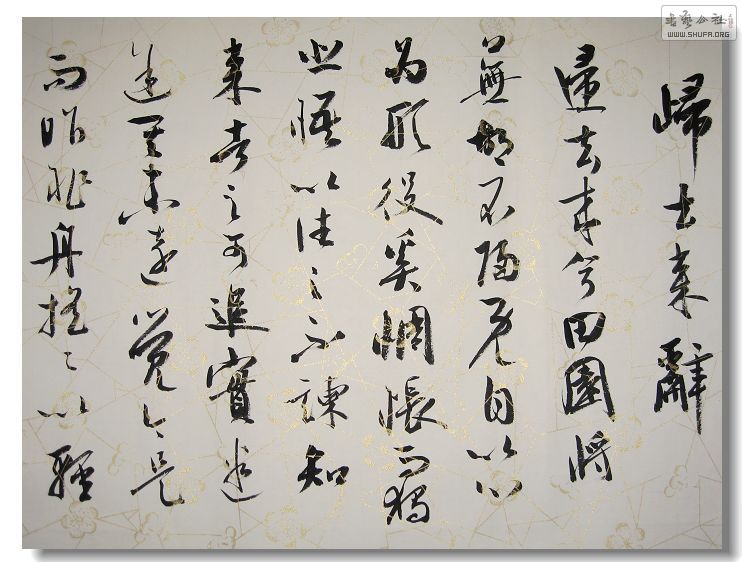 歸去来辭
歸去来兮田園將
蕪胡不歸既自以心
为形役奚惆悵而獨
悲悟以往之不諫知
来者之可追實迷
途其未遠覺今是
而昨非舟搖〻以輕
書藝公社
WWW.SHUFA.ORG